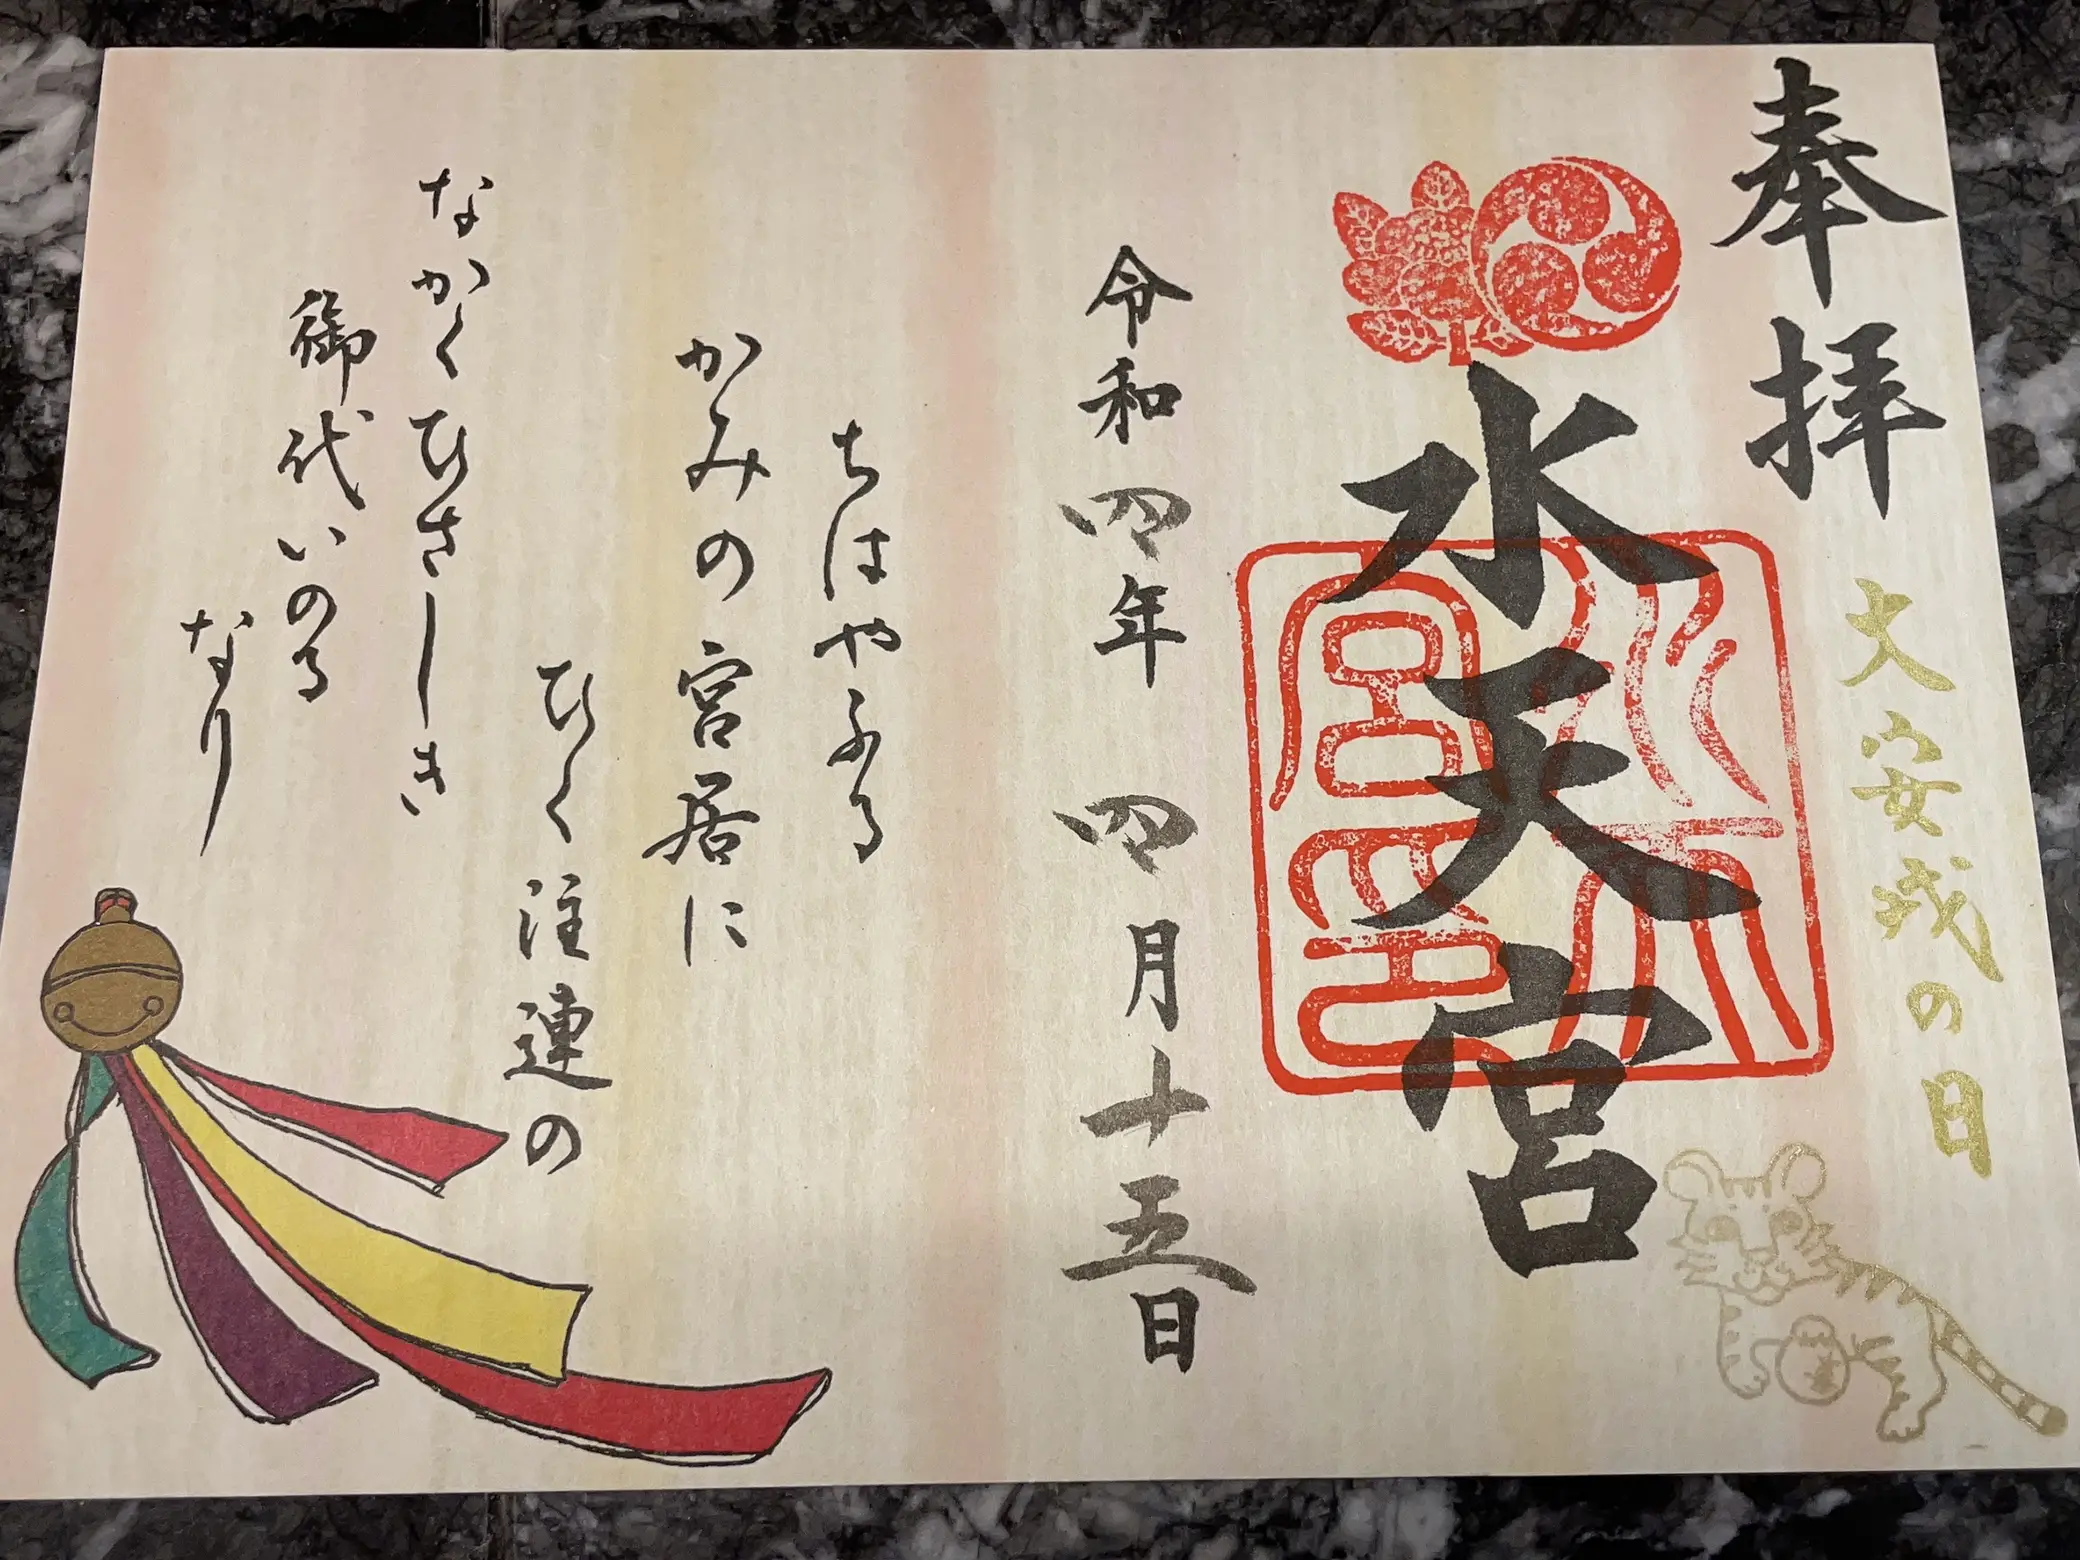 奉拝
大安戌の日
水天宮
水天宮印
令和四年 四月十五日
ちはやふる
かみの宮居に
ひく注連の
なかくひさしき
御代いのる
なり